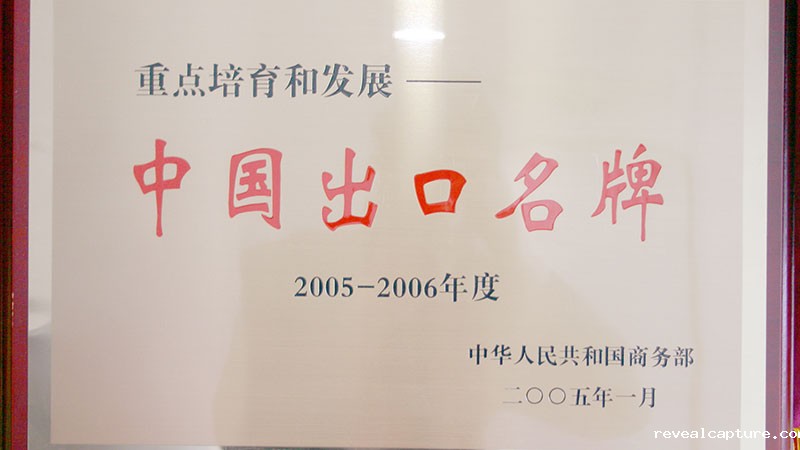 重点培育和发展——
中国出口名牌
2005-2006年度
中华人民共和国商务部
二〇〇五年一月
revealcapture.co